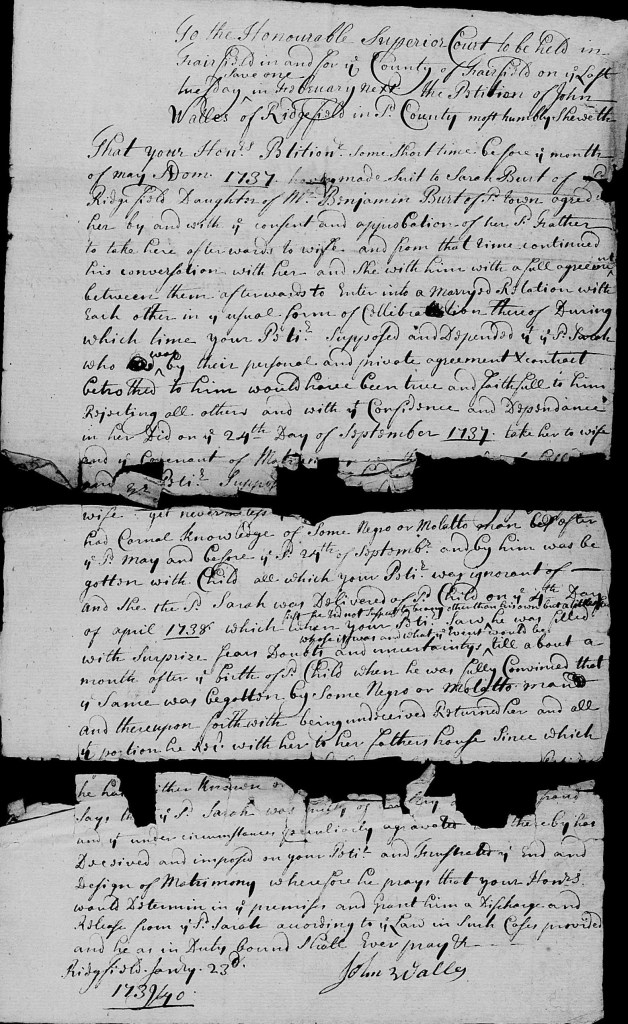 To the Honourable Superior Court to be held in
Fairfield in and for ye County of Fairfield on ye Last
save one
tuesday in February next the Petition of John
Walles of Ridgefield in sd County most humbly Sheweth
That your Honrs Petitionr some short time before ye month
of may A Dom. 1737 made Suit to Sarah Burt of
Ridgfield Daughter of Mr Benjamin Burt of sd town agreed
her by and with ye consent and approbation of her sd Father
to take here afterwards to wife and from that time continued
his conversation with her and She with him with a full agreemt
between them afterwards to Enter into a Marryed Relation with
Each other in ye usual form of Cellibration thereof During
which time your Petir Supposed and Depended yt ye sd Sarah
who was by their personal and private agreement & contract
betrothed to him would have been true and faithfull to him
Rejecting all others and with ye Confidence and Dependance
in her Did on ye 24th Day of September 1737 take her to wife
and ye Covenant of
Petir
wife yet
had Carnal knowledge of Some Negro or Molatto man after
ye sd May and before ye sd 24th of Septembr and by him was be
gotten with Child all which your Petir was ignorant of
and She the sd Sarah was Delivered of sd Child on ye Day
he Did not suspect to be any other than his own but
of april 1738 which when your Petir Saw he was filled
whose it was and what ye Event would be
with Surprize fears Doubts and uncertainty till about a
month after ye birth of sd Child when he was fully Convinced that
ye Same was begotten by Some Negro or Molatto man
and thereupon forthwith being undeceived Returned her and all
ye portion he Recd with her to her fathers house Since which
he Known
Says ye sd Sarah was
and yt under circumstances peculiarly agravated thereby has
Deceived and imposed on your Petir and Frustrated ye End and
Design of Matrimony wherefore he prays that your Honrs
would Determin in ye premises and Grant him a Discharge and
Release from ye sd Sarah acording to ye Law in Such Cases provided
and he as in Duty bound Shall Ever pray &
Ridgfield Janry 23d
John Walles
1739/40